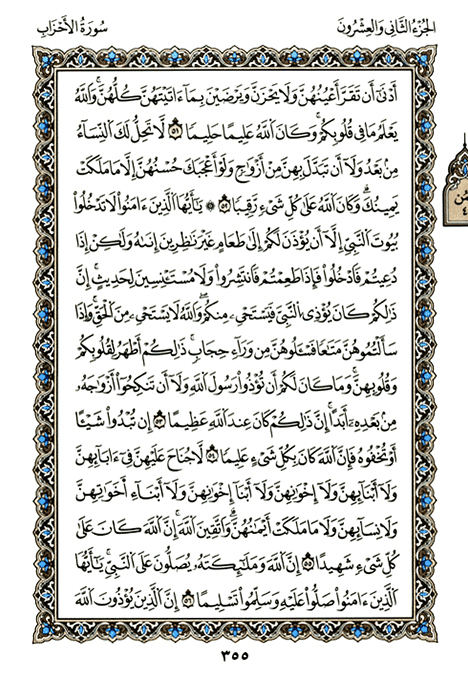 الجُزْءُ الثَّانِي وَالعِشْرُونَ
سُورَةُ الأَحْزَابِ
أَدْنَىٰٓ أَن تَقَرَّ أَعْيُنُهُنَّ وَلَا يَحْزَنَّ وَيَرْضَيْنَ بِمَآ ءَاتَيْتَهُنَّ كُلُّهُنَّ ۚ وَٱللَّهُ
يَعْلَمُ مَا فِى قُلُوبِكُمْ ۚ وَكَانَ ٱللَّهُ عَلِيمًا حَلِيمًا ۝٥١ لَّا تَحِلُّ لَكَ ٱلنِّسَآءُ
مِنۢ بَعْدُ وَلَآ أَن تَبَدَّلَ بِهِنَّ مِنْ أَزْوَٰجٍ وَلَوْ أَعْجَبَكَ حُسْنُهُنَّ إِلَّا مَا مَلَكَتْ
يَمِينُكَ ۗ وَكَانَ ٱللَّهُ عَلَىٰ كُلِّ شَىْءٍ رَّقِيبًا ۝٥٢ يَٰٓأَيُّهَا ٱلَّذِينَ ءَامَنُوا۟ لَا تَدْخُلُوا۟
بُيُوتَ ٱلنَّبِىِّ إِلَّآ أَن يُؤْذَنَ لَكُمْ إِلَىٰ طَعَامٍ غَيْرَ نَٰظِرِينَ إِنَىٰهُ وَلَٰكِنْ إِذَا
دُعِيتُمْ فَٱدْخُلُوا۟ فَإِذَا طَعِمْتُمْ فَٱنتَشِرُوا۟ وَلَا مُسْتَـْٔنِسِينَ لِحَدِيثٍ ۚ إِنَّ
ذَٰلِكُمْ كَانَ يُؤْذِى ٱلنَّبِىَّ فَيَسْتَحْىِۦ مِنكُمْ ۖ وَٱللَّهُ لَا يَسْتَحْىِۦ مِنَ ٱلْحَقِّ ۚ وَإِذَا
سَأَلْتُمُوهُنَّ مَتَٰعًا فَسْـَٔلُوهُنَّ مِن وَرَآءِ حِجَابٍ ۚ ذَٰلِكُمْ أَطْهَرُ لِقُلُوبِكُمْ
وَقُلُوبِهِنَّ ۚ وَمَا كَانَ لَكُمْ أَن تُؤْذُوا۟ رَسُولَ ٱللَّهِ وَلَآ أَن تَنكِحُوٓا۟ أَزْوَٰجَهُۥ
مِنۢ بَعْدِهِۦٓ أَبَدًا ۚ إِنَّ ذَٰلِكُمْ كَانَ عِندَ ٱللَّهِ عَظِيمًا ۝٥٣ إِن تُبْدُوا۟ شَيْـًٔا
أَوْ تُخْفُوهُ فَإِنَّ ٱللَّهَ كَانَ بِكُلِّ شَىْءٍ عَلِيمًا ۝٥٤ لَّا جُنَاحَ عَلَيْهِنَّ فِىٓ ءَابَآئِهِنَّ
وَلَآ أَبْنَآئِهِنَّ وَلَآ إِخْوَٰنِهِنَّ وَلَآ أَبْنَآءِ إِخْوَٰنِهِنَّ وَلَآ أَبْنَآءِ أَخَوَٰتِهِنَّ
وَلَا نِسَآئِهِنَّ وَلَا مَا مَلَكَتْ أَيْمَٰنُهُنَّ ۗ وَٱتَّقِينَ ٱللَّهَ ۚ إِنَّ ٱللَّهَ كَانَ عَلَىٰ
كُلِّ شَىْءٍ شَهِيدًا ۝٥٥ إِنَّ ٱللَّهَ وَمَلَٰٓئِكَتَهُۥ يُصَلُّونَ عَلَى ٱلنَّبِىِّ ۚ يَٰٓأَيُّهَا
ٱلَّذِينَ ءَامَنُوا۟ صَلُّوا۟ عَلَيْهِ وَسَلِّمُوا۟ تَسْلِيمًا ۝٥٦ إِنَّ ٱلَّذِينَ يُؤْذُونَ ٱللَّهَ
٣٥٥